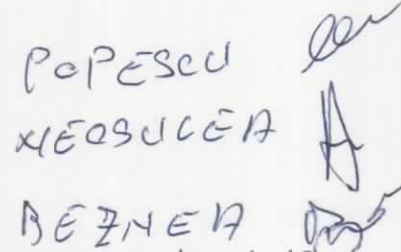 POPESCU
NEGSULEA
BEZNEA